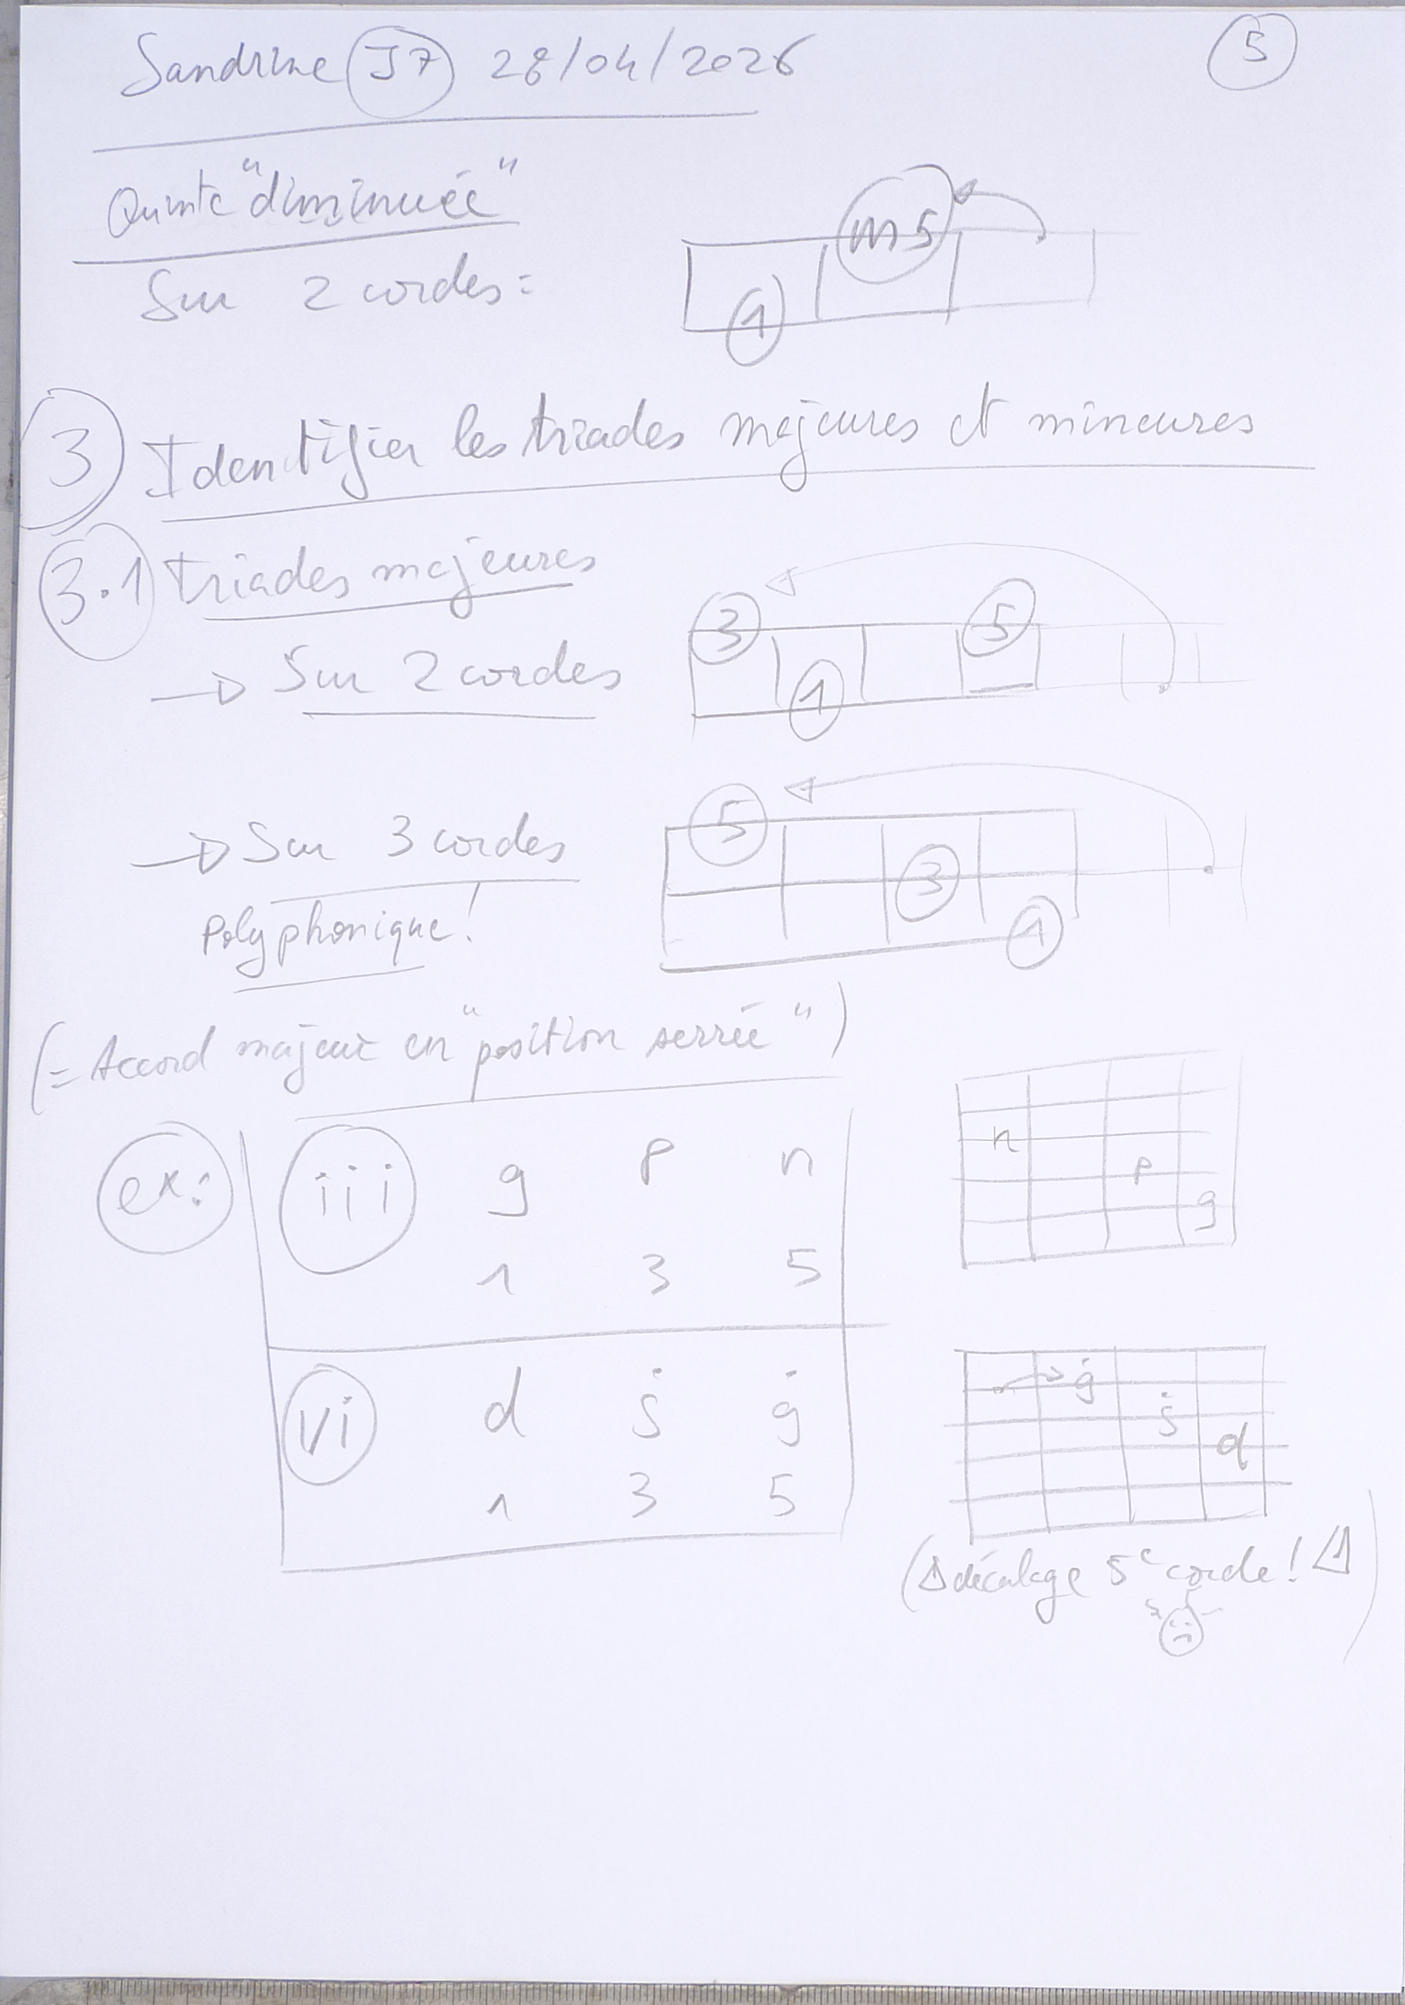 Sandrine J7 28/04/2026
5
Quinte "diminuée"
Sur 2 cordes =
m5
1
3 Identifier les triades majeures et mineures
3.1 triades majeures
→ Sur 2 cordes
3 5
1
→ Sur 3 cordes
polyphonique !
5
3
1
(= Accord majeur en "position serrée")
ex :
iii g p n
1 3 5
n
p
g
vi d j g
1 3 5
g
j
d
(⚠ décalage 5e corde ! ⚠)